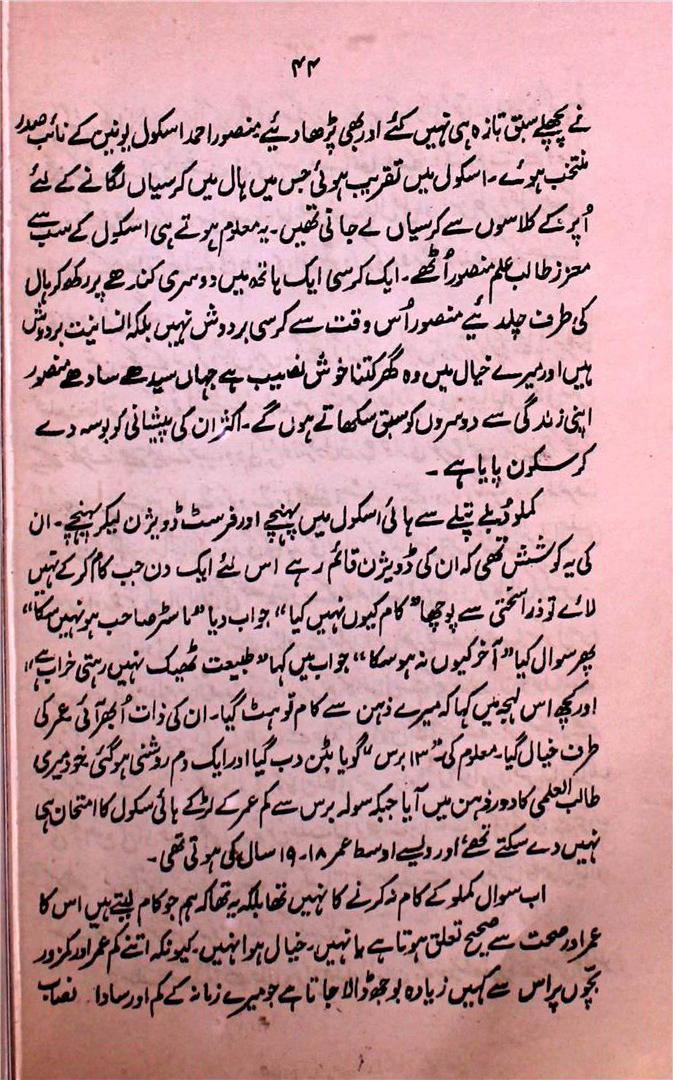 ۴۴
نے پچھلے سبق تازہ ہی نہیں کئے اور بھی پڑھا دیئے منصور احمد اسکول یونین کے نائب صدر
منتخب ہوئے۔ اسکول میں تقریب ہوئی جس میں ہال میں کرسیاں لگانے کے لئے
اُپر کے کلاسوں سے کرسیاں لے جانی تھیں۔ یہ معلوم ہوتے ہی اسکول کے سب سے
معزز طالب علم منصور اُٹھے۔ ایک کرسی ایک ہاتھ میں دوسری کندھے پر رکھ کر ہال
کی طرف چلدئیے منصور اُس وقت سے کرسی بردوش نہیں بلکہ انسانیت بردوش
ہیں اور میرے خیال میں وہ گھر کتنا خوش نصیب ہے جہاں سیدھے سادھے منصور
اپنی زندگی سے دوسروں کو سبق سکھاتے ہوں گے۔ اکثر ان کی پیشانی کو بوسہ دے
کر سکون پایا ہے۔
کملو دُبلے پتلے سے ہائی اسکول میں پہنچے اور فرسٹ ڈویژن لیکر پہنچے۔ ان
کی یہ کوشش تھی کہ ان کی ڈویژن قائم رہے اس لئے ایک دن جب کام کر کے نہیں
لائے تو ذرا سختی سے پوچھا "کام کیوں نہیں کیا" جواب دیا "ماسٹر صاحب ہو نہیں سکا"
پھر سوال کیا "آخر کیوں نہ ہو سکا" جواب میں کہا "طبیعت ٹھیک نہیں رہتی خراب ہے"
اور کچھ اس لہجہ میں کہا کہ میرے ذہن سے کام تو ہٹ گیا۔ ان کی ذات اُبھر آئی۔ عمر کی
طرف خیال گیا۔ معلوم کی "۱۳ برس" گویا بٹن دب گیا اور ایک دم روشنی ہو گئی خود میری
طالب العلمی کا دور ذہن میں آیا جبکہ سولہ برس سے کم عمر کے لڑکے ہائی سکول کا امتحان ہی
نہیں دے سکتے تھے، اور ویسے اوسط عمر ۱۸۔۱۹ سال کی ہوتی تھی۔
اب سوال کملو کے کام نہ کرنے کا نہیں تھا بلکہ یہ تھا کہ ہم جو کام لیتے ہیں اس کا
عمر اور صحت سے صحیح تعلق ہوتا ہے یا نہیں۔ خیال ہوا نہیں۔ کیونکہ اتنے کم عمر اور کمزور
بچّوں پر اس سے کہیں زیادہ بوجھ ڈالا جاتا ہے جو میرے زمانہ کے کم اور سادا نصاب